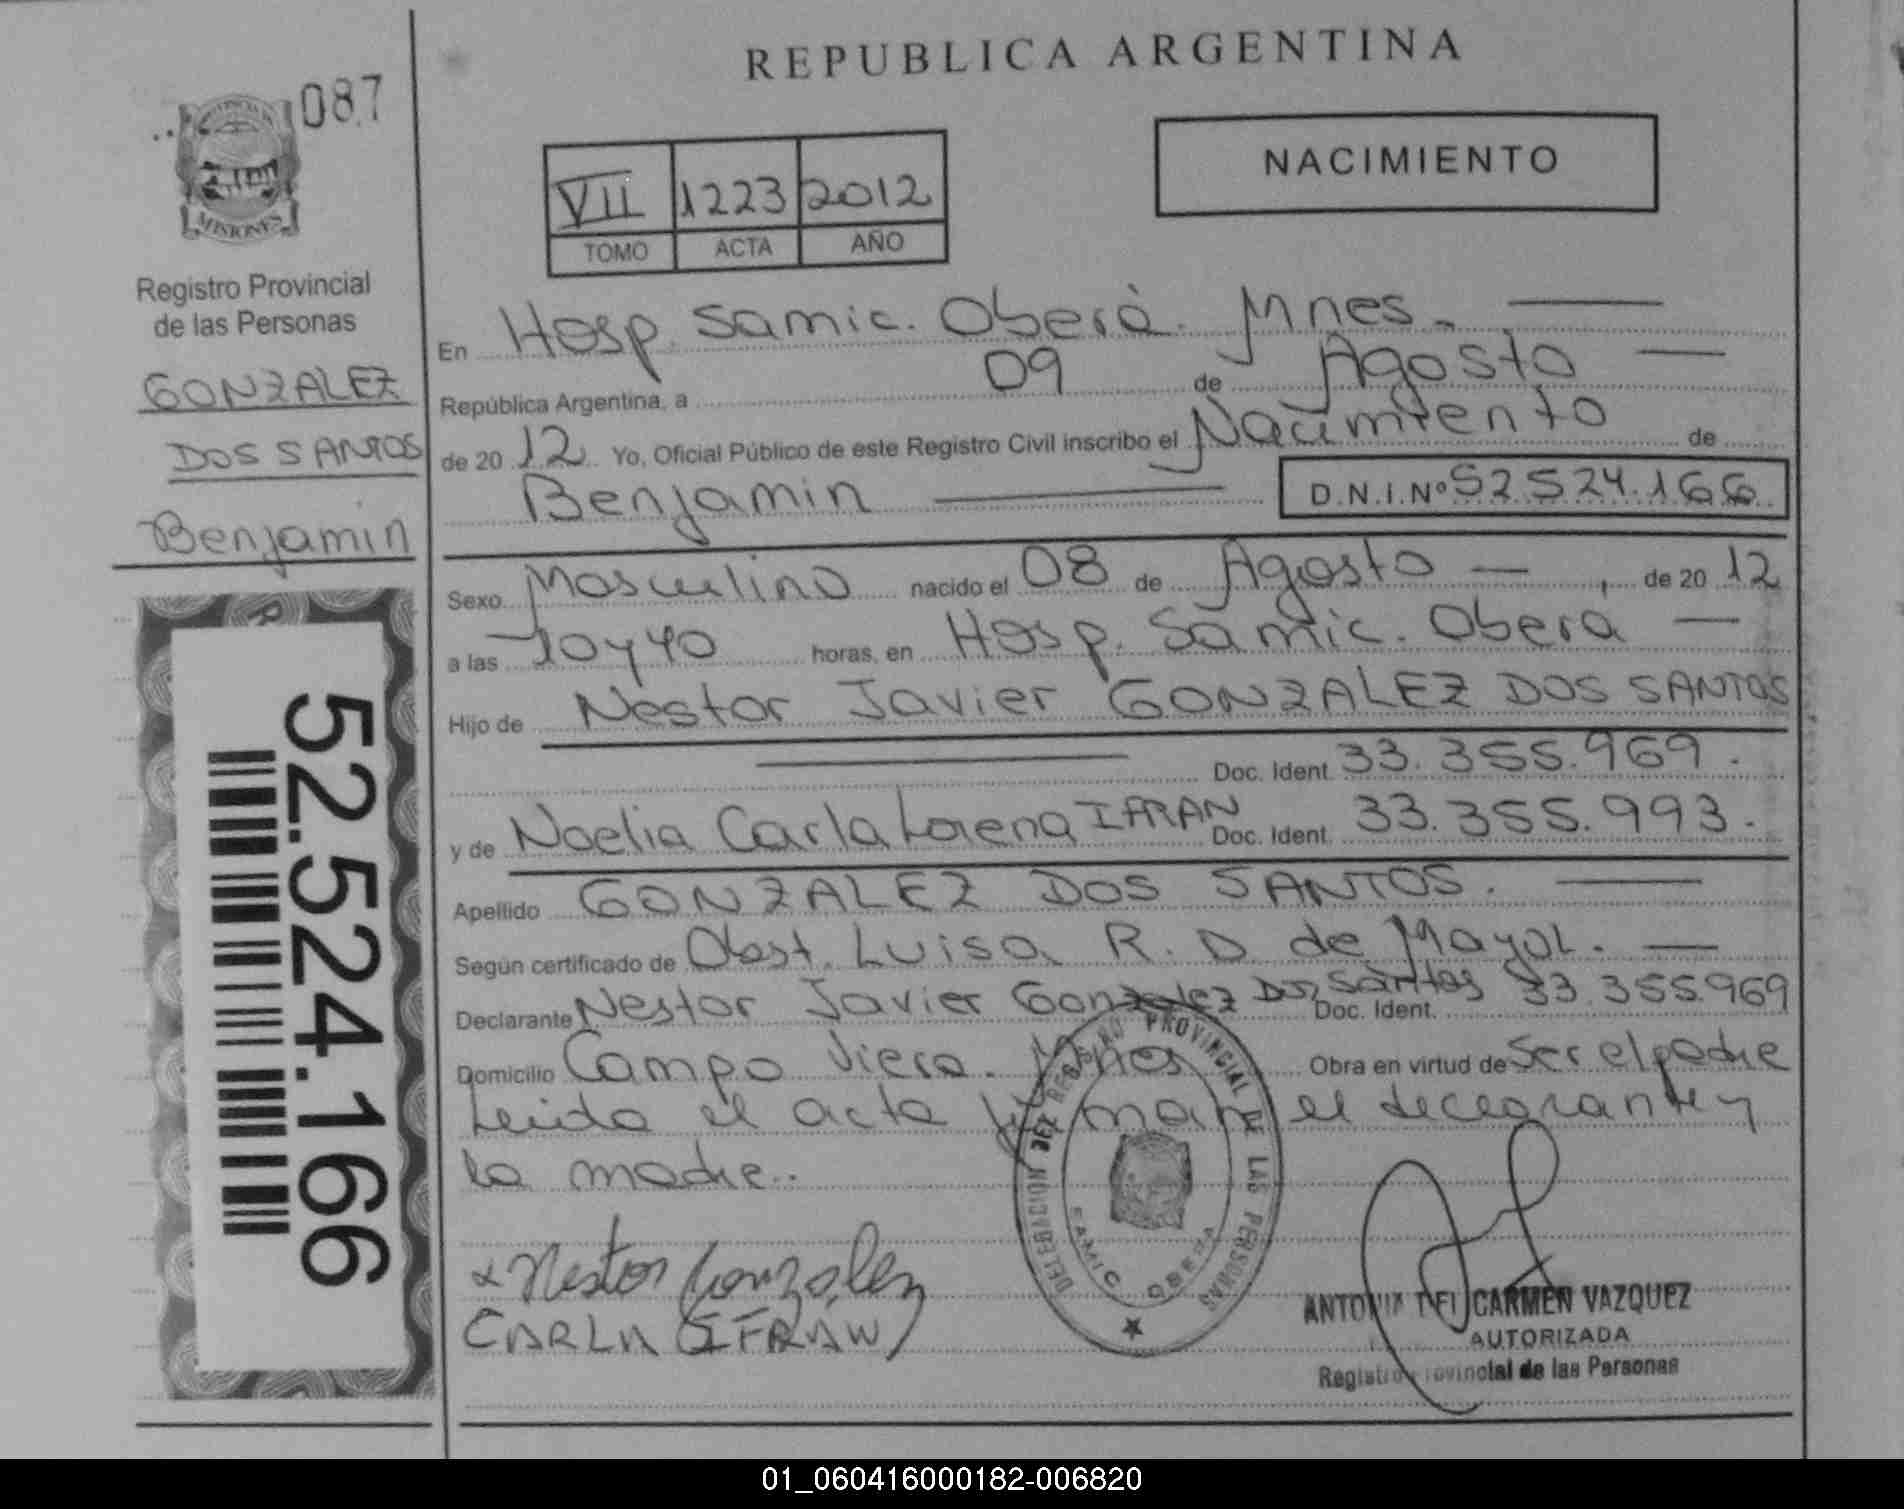 REPUBLICA ARGENTINA
087
MISIONES
Registro Provincial
de las Personas
GONZALEZ
DOS SANTOS
Benjamin
52.524.166
VII 1223 2012
TOMO ACTA AÑO
NACIMIENTO
En Hosp. Samic. Oberá. Mnes.
República Argentina, a 09 de Agosto
de 20 12 Yo, Oficial Público de este Registro Civil inscribo el Nacimiento de
Benjamin D.N.I.Nº 52.524.166
Sexo Masculino nacido el 08 de Agosto , de 20 12
a las 10 y 40 horas, en Hosp. Samic. Obera
Hijo de Nestor Javier GONZALEZ DOS SANTOS
Doc. Ident. 33.355.969.
y de Noelia Carla Lorena IFRAN Doc. Ident. 33.355.993.
Apellido GONZALEZ DOS SANTOS.
Según certificado de Obst. Luisa R. D. de Mayol.
Declarante Nestor Javier Gonzalez Dos Santos Doc. Ident. 33.355.969
Domicilio Campo Viera. Mnes Obra en virtud de Ser el padre
Leida el acta firman el declarante y
la madre..
Nestor Gonzalez
CARLA IFRAN
DELEGACION DEL REGISTRO PROVINCIAL DE LAS PERSONAS
SAMIC OBERA
ANTONIA DEL CARMEN VAZQUEZ
AUTORIZADA
Registro Provincial de las Personas
01_060416000182-006820